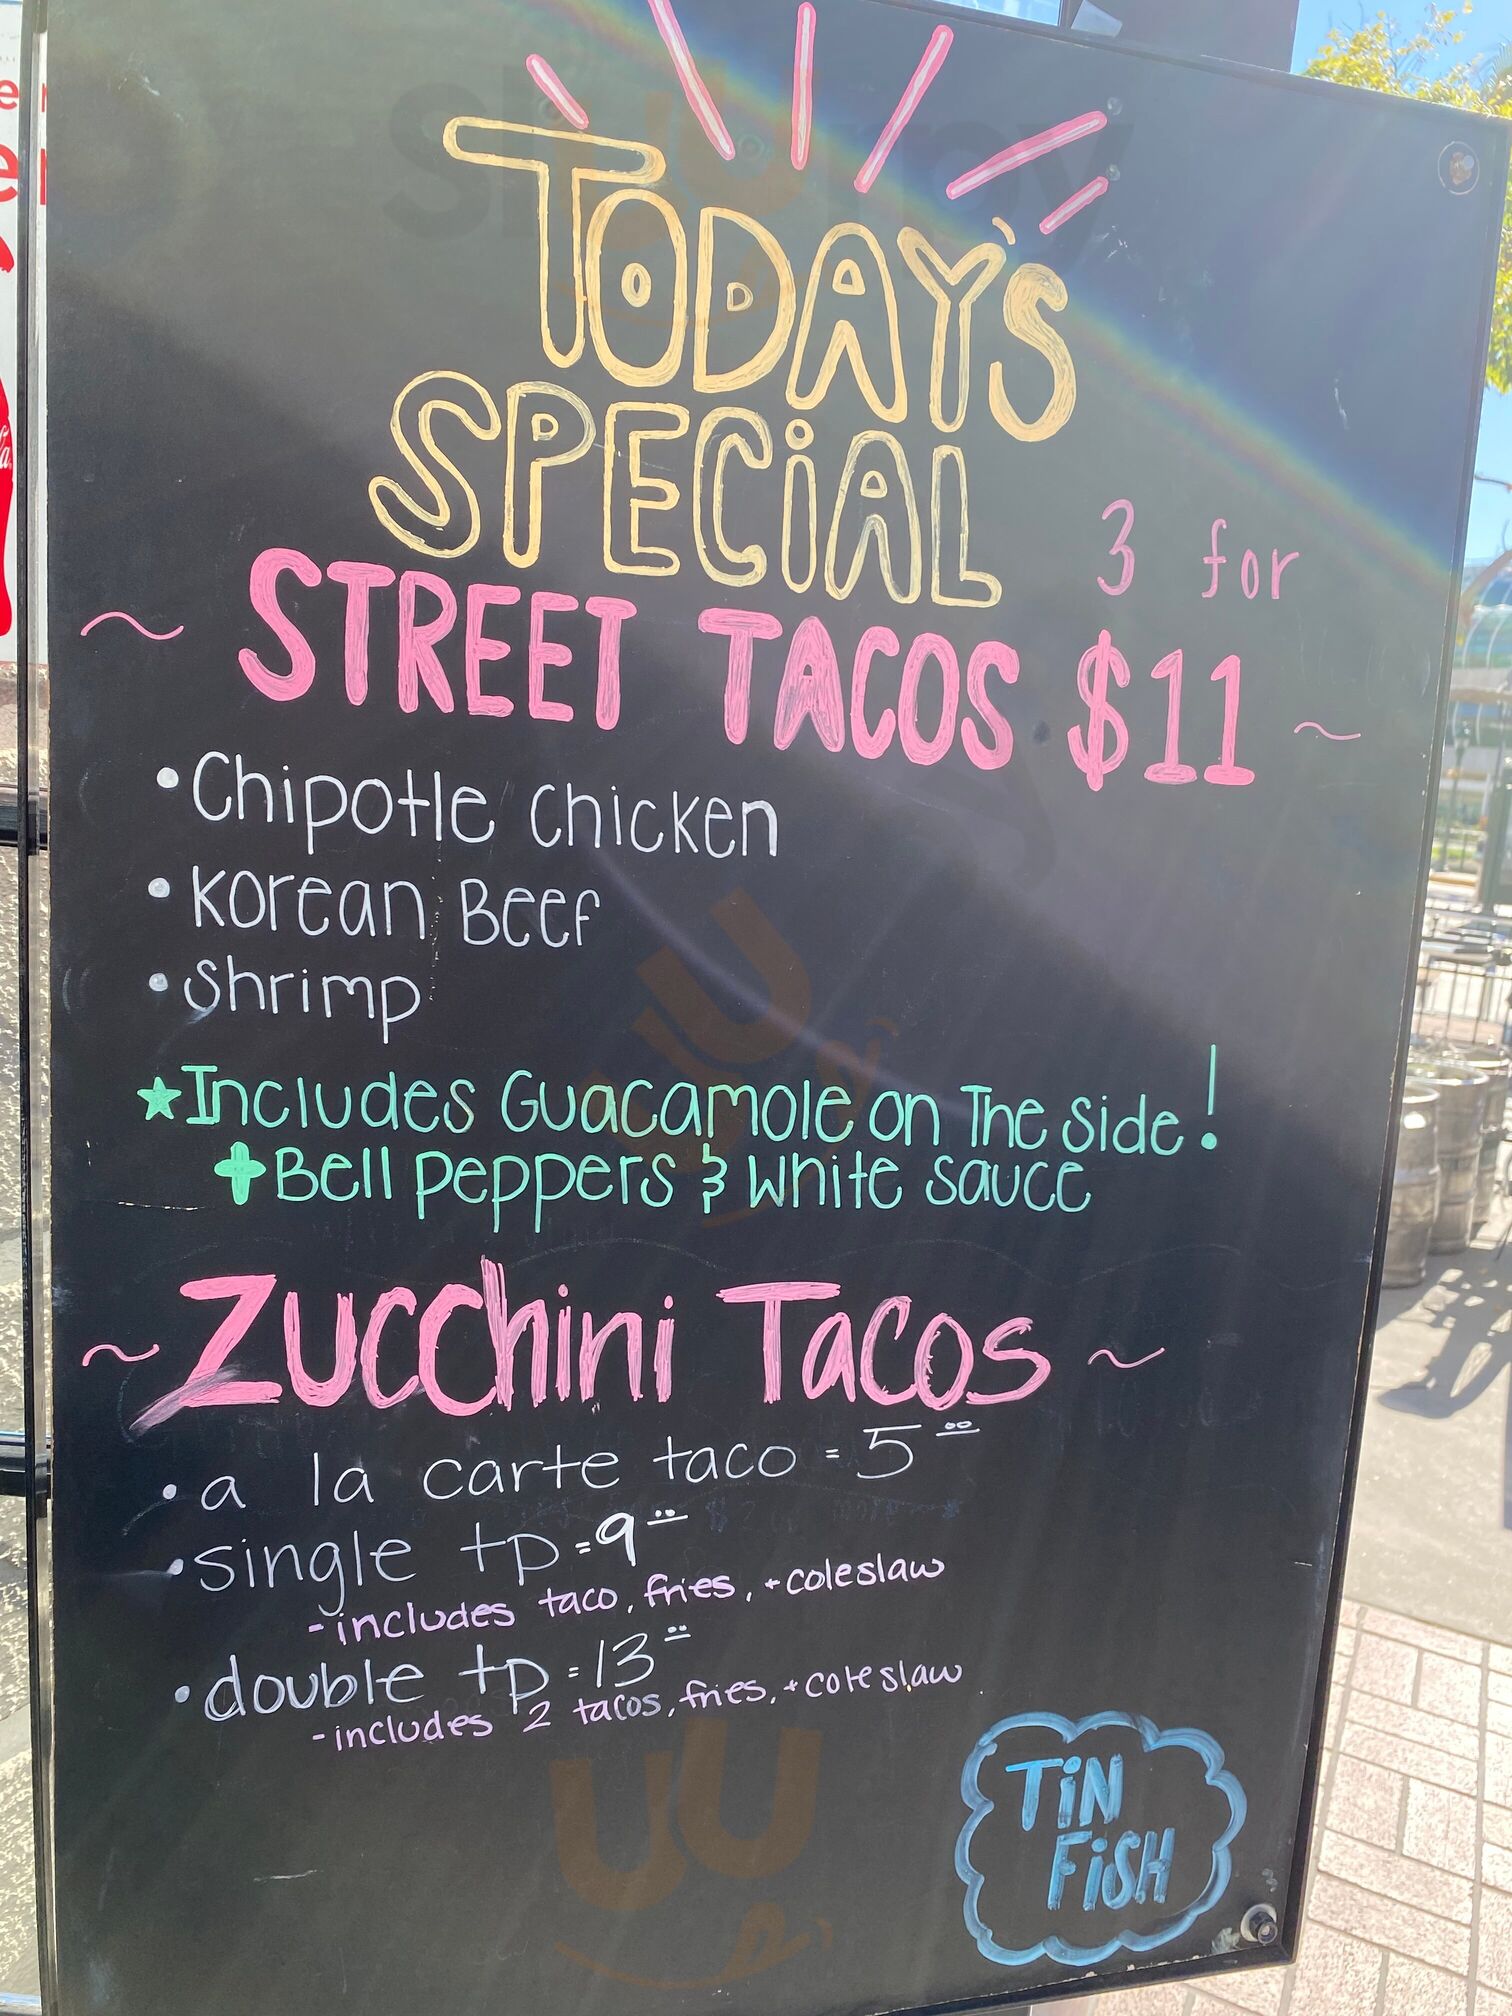 TODAY'S
SPECiAL
3 for
~ STREET TACOS $11 ~
• Chipotle chicken
• Korean Beef
• shrimp
★ Includes Guacamole on The side!
+ Bell peppers & white sauce
~ Zucchini Tacos ~
• a la carte taco = 5 00
• single tp = 9 00
- includes taco, fries, + coleslaw
• double tp = 13 00
- includes 2 tacos, fries, + coleslaw
TiN
FiSH